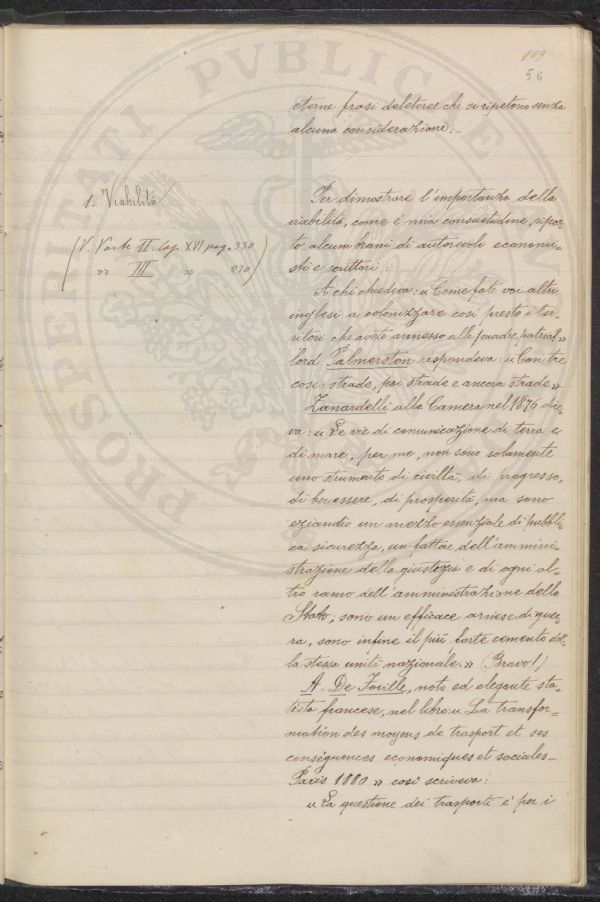 109
56
eterne frasi deleteree che si ripetono senza
alcuna considerazione.
1. Viabilità
(V. Parte II Cap. XVI pag. 330
" III " 230)
Per dimostrare l'importanza della
viabilità, come è mia consuetudine, ripor-
to alcuni brani di autorevoli economi-
sti e scrittori:
A chi chiedeva: « Come fate voi altri
inglesi a colonizzare così presto i ter-
ritori che avete annesso alla madre patria? »
lord Palmerston rispondeva: « Con tre
cose: strade, poi strade e ancora strade ».
Zanardelli alla Camera nel 1876 dice-
va: « Le vie di comunicazione di terra e
di mare, per me, non sono solamente
uno strumento di civiltà, di progresso,
di benessere, di prosperità, ma sono
eziandio un mezzo essenziale di pubbli-
ca sicurezza, un fattore dell'ammini-
strazione della giustizia e di ogni al-
tro ramo dell'amministrazione dello
Stato; sono un efficace arnese di guer-
ra, sono infine il più forte cemento del-
la stessa unità nazionale. » (Bravo!)
A. De Foville, noto ed elegante sta-
tista francese, nel libro: « La transfor-
mation des moyens de trasport et ses
conséquences economiques et sociales -
Paris 1880 » così scriveva:
« La questione dei trasporti è per i
PROSPERITATI PVBLICAE